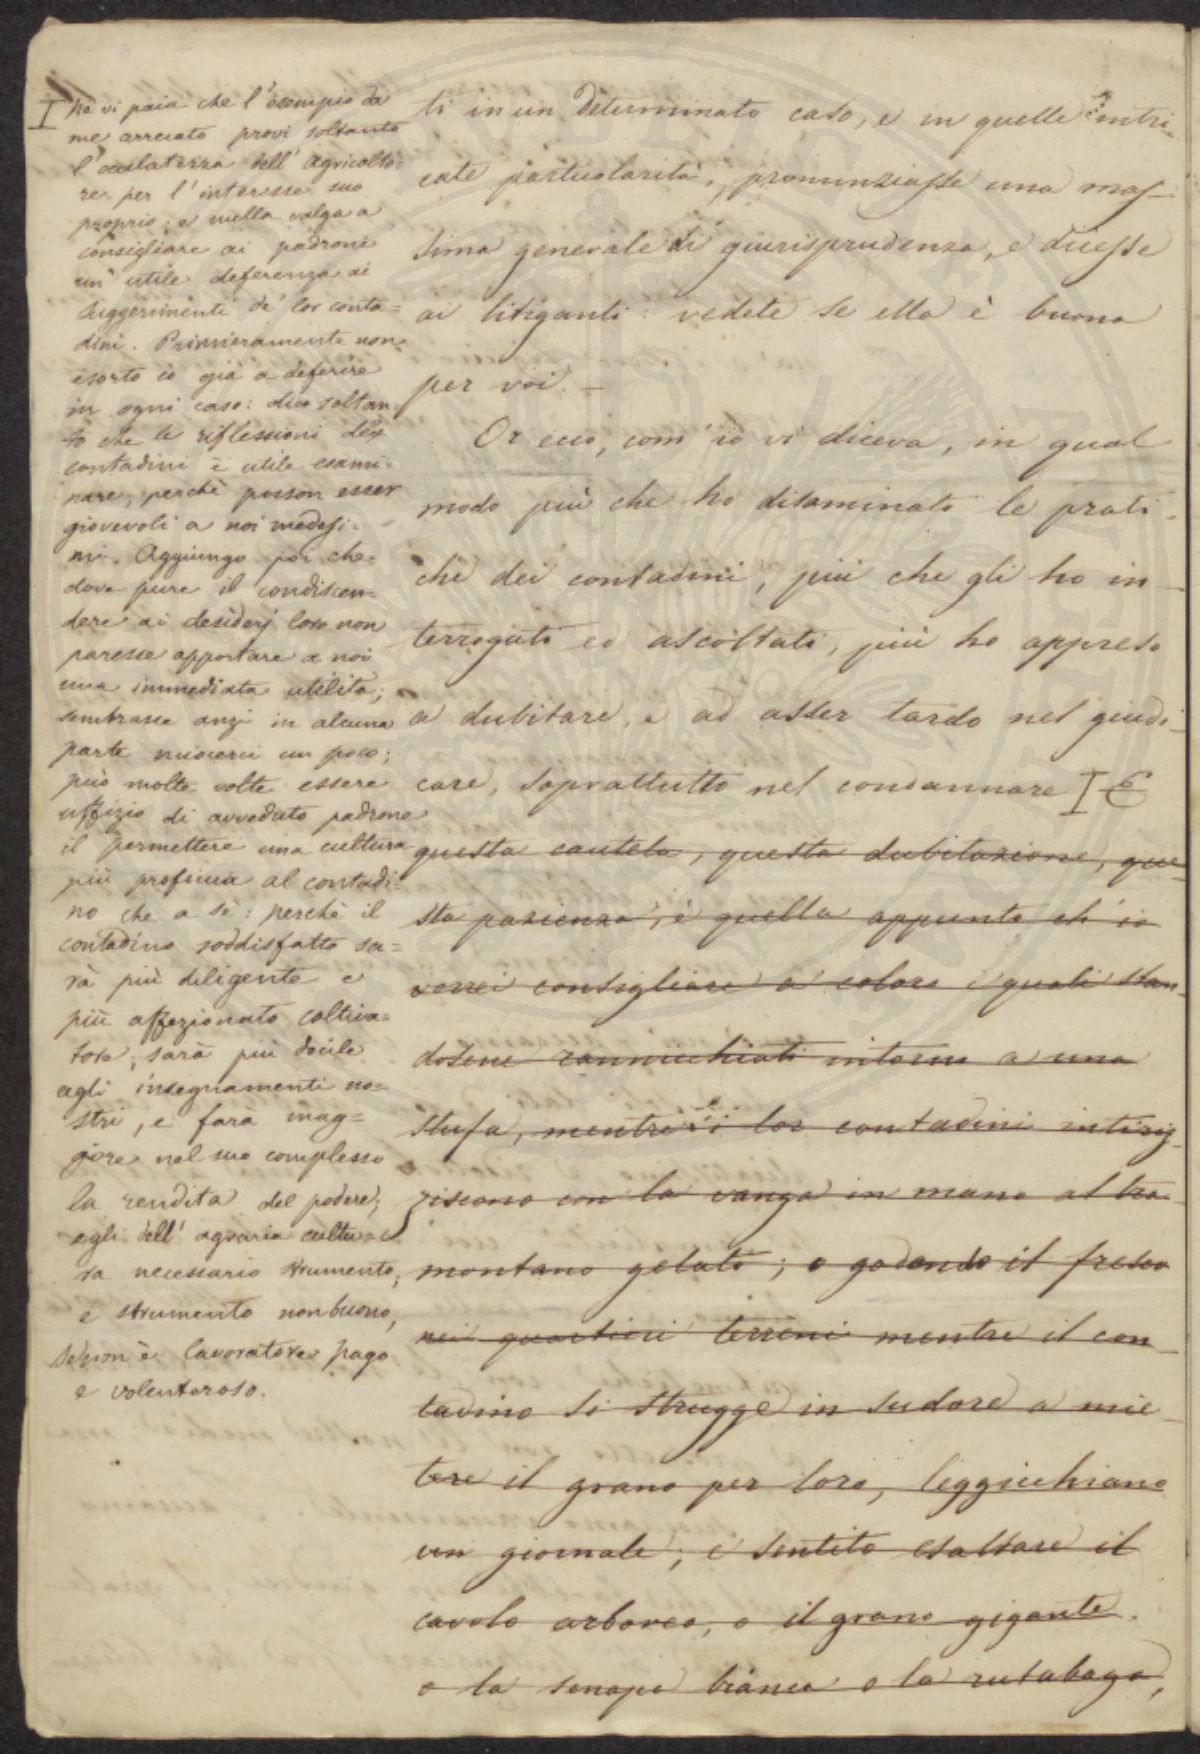 I Nè vi paia che l'esempio da
me arrecato provi soltanto
l'oculatezza dell'Agricolto=
re per l'interesse suo
proprio; e nulla valga a
consigliare ai padroni
un utile deferenza ai
suggerimenti de' lor conta=
dini. Primieramente non
esorto io già a deferire
in ogni caso: dico soltan
to che le riflessioni dei
contadini è utile esami=
nare, perchè posson esser
giovevoli a noi medesi=
mi. Aggiungo poi che
dove pure il condiscen=
dere ai desiderj loro non
paresse apportare a noi
una immediata utilità;
sembrasse anzi in alcuna
parte nuocerci un poco;
può molte volte essere
uffizio di avveduto padrone
il permettere una cultura
più proficua al contadi=
no che a sè: perchè il
contadino soddisfatto sa=
rà più diligente e
più affezionato coltiva=
tore, sarà più docile
agli insegnamenti no=
stri, e farà mag=
giore nel suo complesso
la rendita del podere;
egli dell'agraria cultu=
ra necessario strumento,
e strumento non buono,
se non è lavoratore pago
e volenteroso.
ti in un determinato caso, e in quelle intri=
cate particolarità, pronunziasse una mas-
sima generale di giurisprudenza, e dicesse
ai litiganti: vedete se ella è buona
per voi. –
Or ecco, com' io vi diceva, in qual
modo più che ho disaminato le prati-
che dei contadini, più che gli ho in-
terrogati ed ascoltati, più ho appreso
a dubitare, e ad esser tardo nel giudi-
care, soprattutto nel condannare I E
questa cautela, questa dubitazione, que-
sta pazienza, è quella appunto ch' io
vorrei consigliare a coloro i quali stan-
dosene rannicchiati intorno a una
stufa, mentre i lor contadini intiriz-
ziscono con la vanga in mano al tra
montano gelato; o godendo il fresco
nei quartieri terreni mentre il con-
tadino si strugge in sudore a mie-
tere il grano per loro, leggicchiano
un giornale; e sentito esaltare il
cavolo arboreo, o il grano gigante,
o la senapa bianca o la rutabaga,